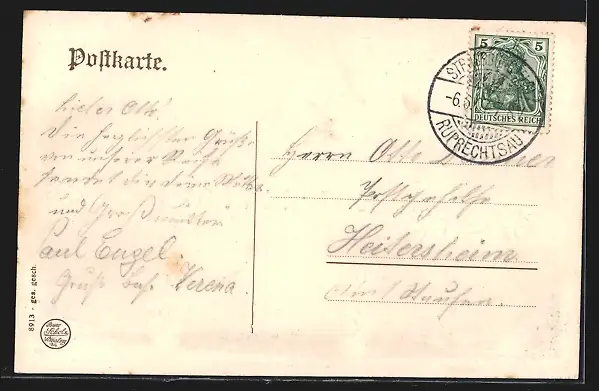 Postkarte.
5 5
DEUTSCHES REICH
-6.
RUPRECHTSAU
Lieber Otto!
Die herzlichsten Grüße
von unserer Reise
sendet dir deine Mutter
und Großmutter
Paul Engel.
Gruß Verena.
Herrn Otto
Postgehilfe
Heitersheim
Amt Staufen.
8913 - ges. gesch.